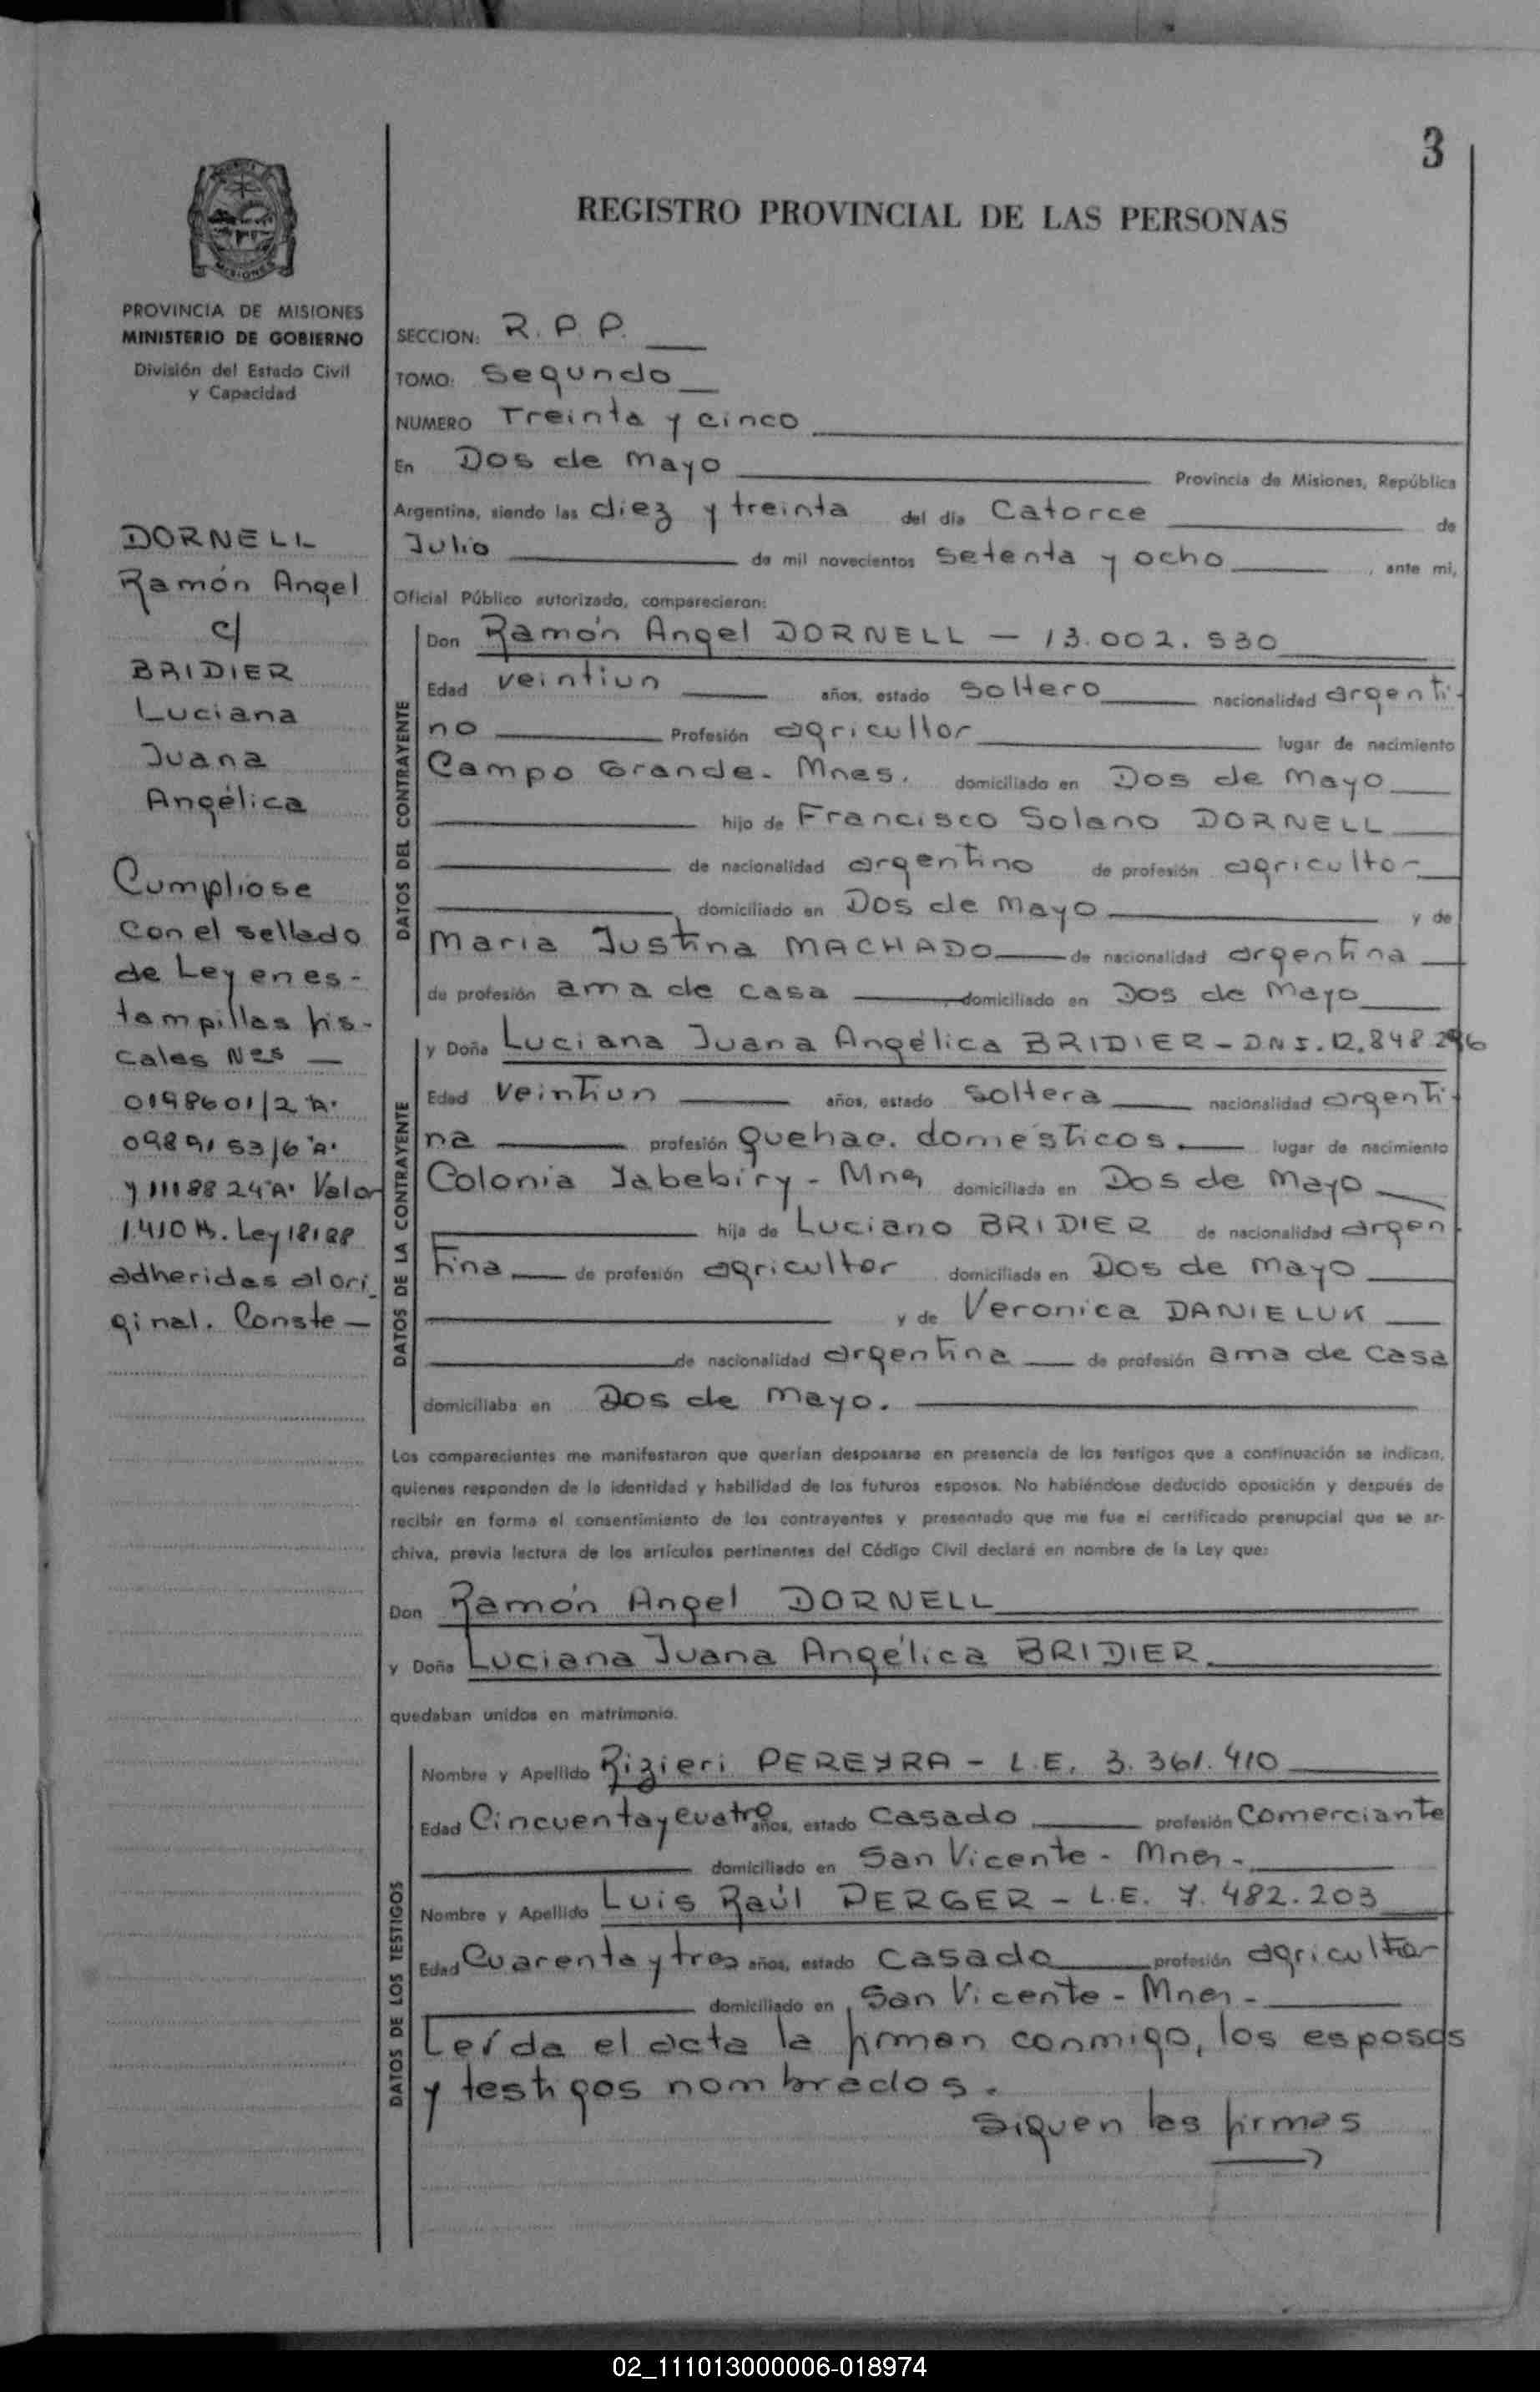 3
REGISTRO PROVINCIAL DE LAS PERSONAS
MISIONES
PROVINCIA DE MISIONES
MINISTERIO DE GOBIERNO
División del Estado Civil
y Capacidad
DORNELL
Ramón Angel
c/
BRIDIER
Luciana
Juana
Angélica
Cumpliose
con el sellado
de Ley en es-
tampillas fis-
cales Nes —
0198601/2 "A"
0989153/6 "A"
y 1118824 "A" Valor
1.410 . Ley 18188
adheridas al ori-
ginal. Conste —
SECCION: R. P. P.
TOMO: Segundo
NUMERO Treinta y cinco
En Dos de Mayo Provincia de Misiones, República
Argentina, siendo las diez y treinta del día Catorce de
Julio de mil novecientos setenta y ocho, ante mi,
Oficial Público autorizado, comparecieron:
DATOS DEL CONTRAYENTE
Don Ramón Angel DORNELL — 13.002.530
Edad veintiun años, estado soltero nacionalidad argenti-
no Profesión agricultor lugar de nacimiento
Campo Grande - Mnes. domiciliado en Dos de Mayo
hijo de Francisco Solano DORNELL
de nacionalidad argentino de profesión agricultor
domiciliado en Dos de Mayo y de
Maria Justina MACHADO de nacionalidad argentina
de profesión ama de casa domiciliado en Dos de Mayo
DATOS DE LA CONTRAYENTE
y Doña Luciana Juana Angélica BRIDIER - DNI. 12.848.296
Edad veintiun años, estado soltera nacionalidad argenti-
na profesión quehac. domésticos. lugar de nacimiento
Colonia Yabebiry - Mnes domiciliada en Dos de Mayo
hija de Luciano BRIDIER de nacionalidad argen-
tina de profesión agricultor domiciliada en Dos de Mayo
y de Veronica DANIELUK
de nacionalidad argentina de profesión ama de casa
domiciliaba en Dos de Mayo.
Los comparecientes me manifestaron que querían desposarse en presencia de los testigos que a continuación se indican,
quienes responden de la identidad y habilidad de los futuros esposos. No habiéndose deducido oposición y después de
recibir en forma el consentimiento de los contrayentes y presentado que me fue el certificado prenupcial que se ar-
chiva, previa lectura de los artículos pertinentes del Código Civil declaré en nombre de la Ley que:
Don Ramón Angel DORNELL
y Doña Luciana Juana Angélica BRIDIER
quedaban unidos en matrimonio.
DATOS DE LOS TESTIGOS
Nombre y Apellido Rizieri PEREYRA - L.E. 3.361.410
Edad Cincuenta y cuatro años, estado casado profesión Comerciante
domiciliado en San Vicente - Mnes -
Nombre y Apellido Luis Raúl DERGER - L.E. 7.482.203
Edad Cuarenta y tres años, estado casado profesión agricultor
domiciliado en San Vicente - Mnes -
Leída el acta la firman conmigo, los esposos
y testigos nombrados.
Siguen las firmas
→
02_111013000006-018974